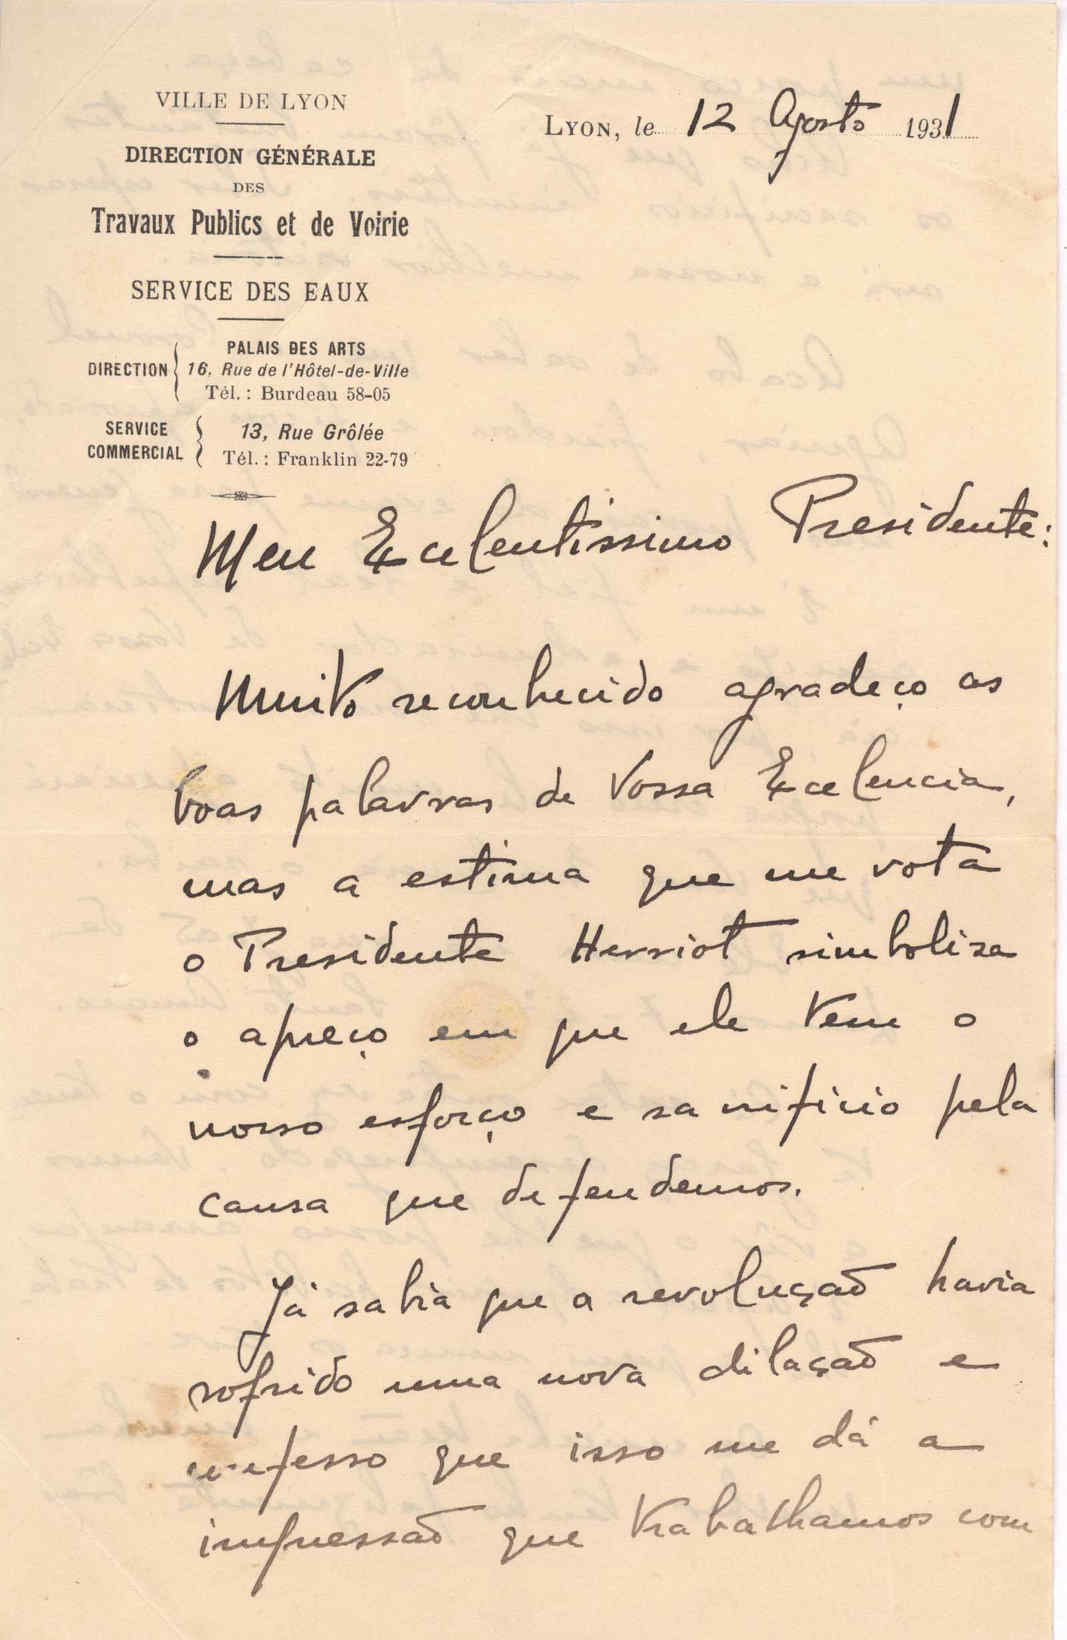 VILLE DE LYON
DIRECTION GÉNÉRALE
DES
Travaux Publics et de Voirie
SERVICE DES EAUX
DIRECTION
PALAIS DES ARTS
16, Rue de l'Hôtel-de-Ville
Tél. : Burdeau 58-05
SERVICE COMMERCIAL
13, Rue Grôlée
Tél. : Franklin 22-79
LYON, le 12 Agosto 1931
Meu Excelentissimo Presidente:
Muito reconhecido agradeço as
boas palavras de Vossa Excelencia,
mas a estima que me vota
o Presidente Herriot simbolisa
o apreço em que ele tem o
nosso esforço e sacrificio pela
causa que defendemos.
Já sabia que a revolução havia
sofrido uma nova dilação e
confesso que isso me dá a
impressão que trabalhamos com